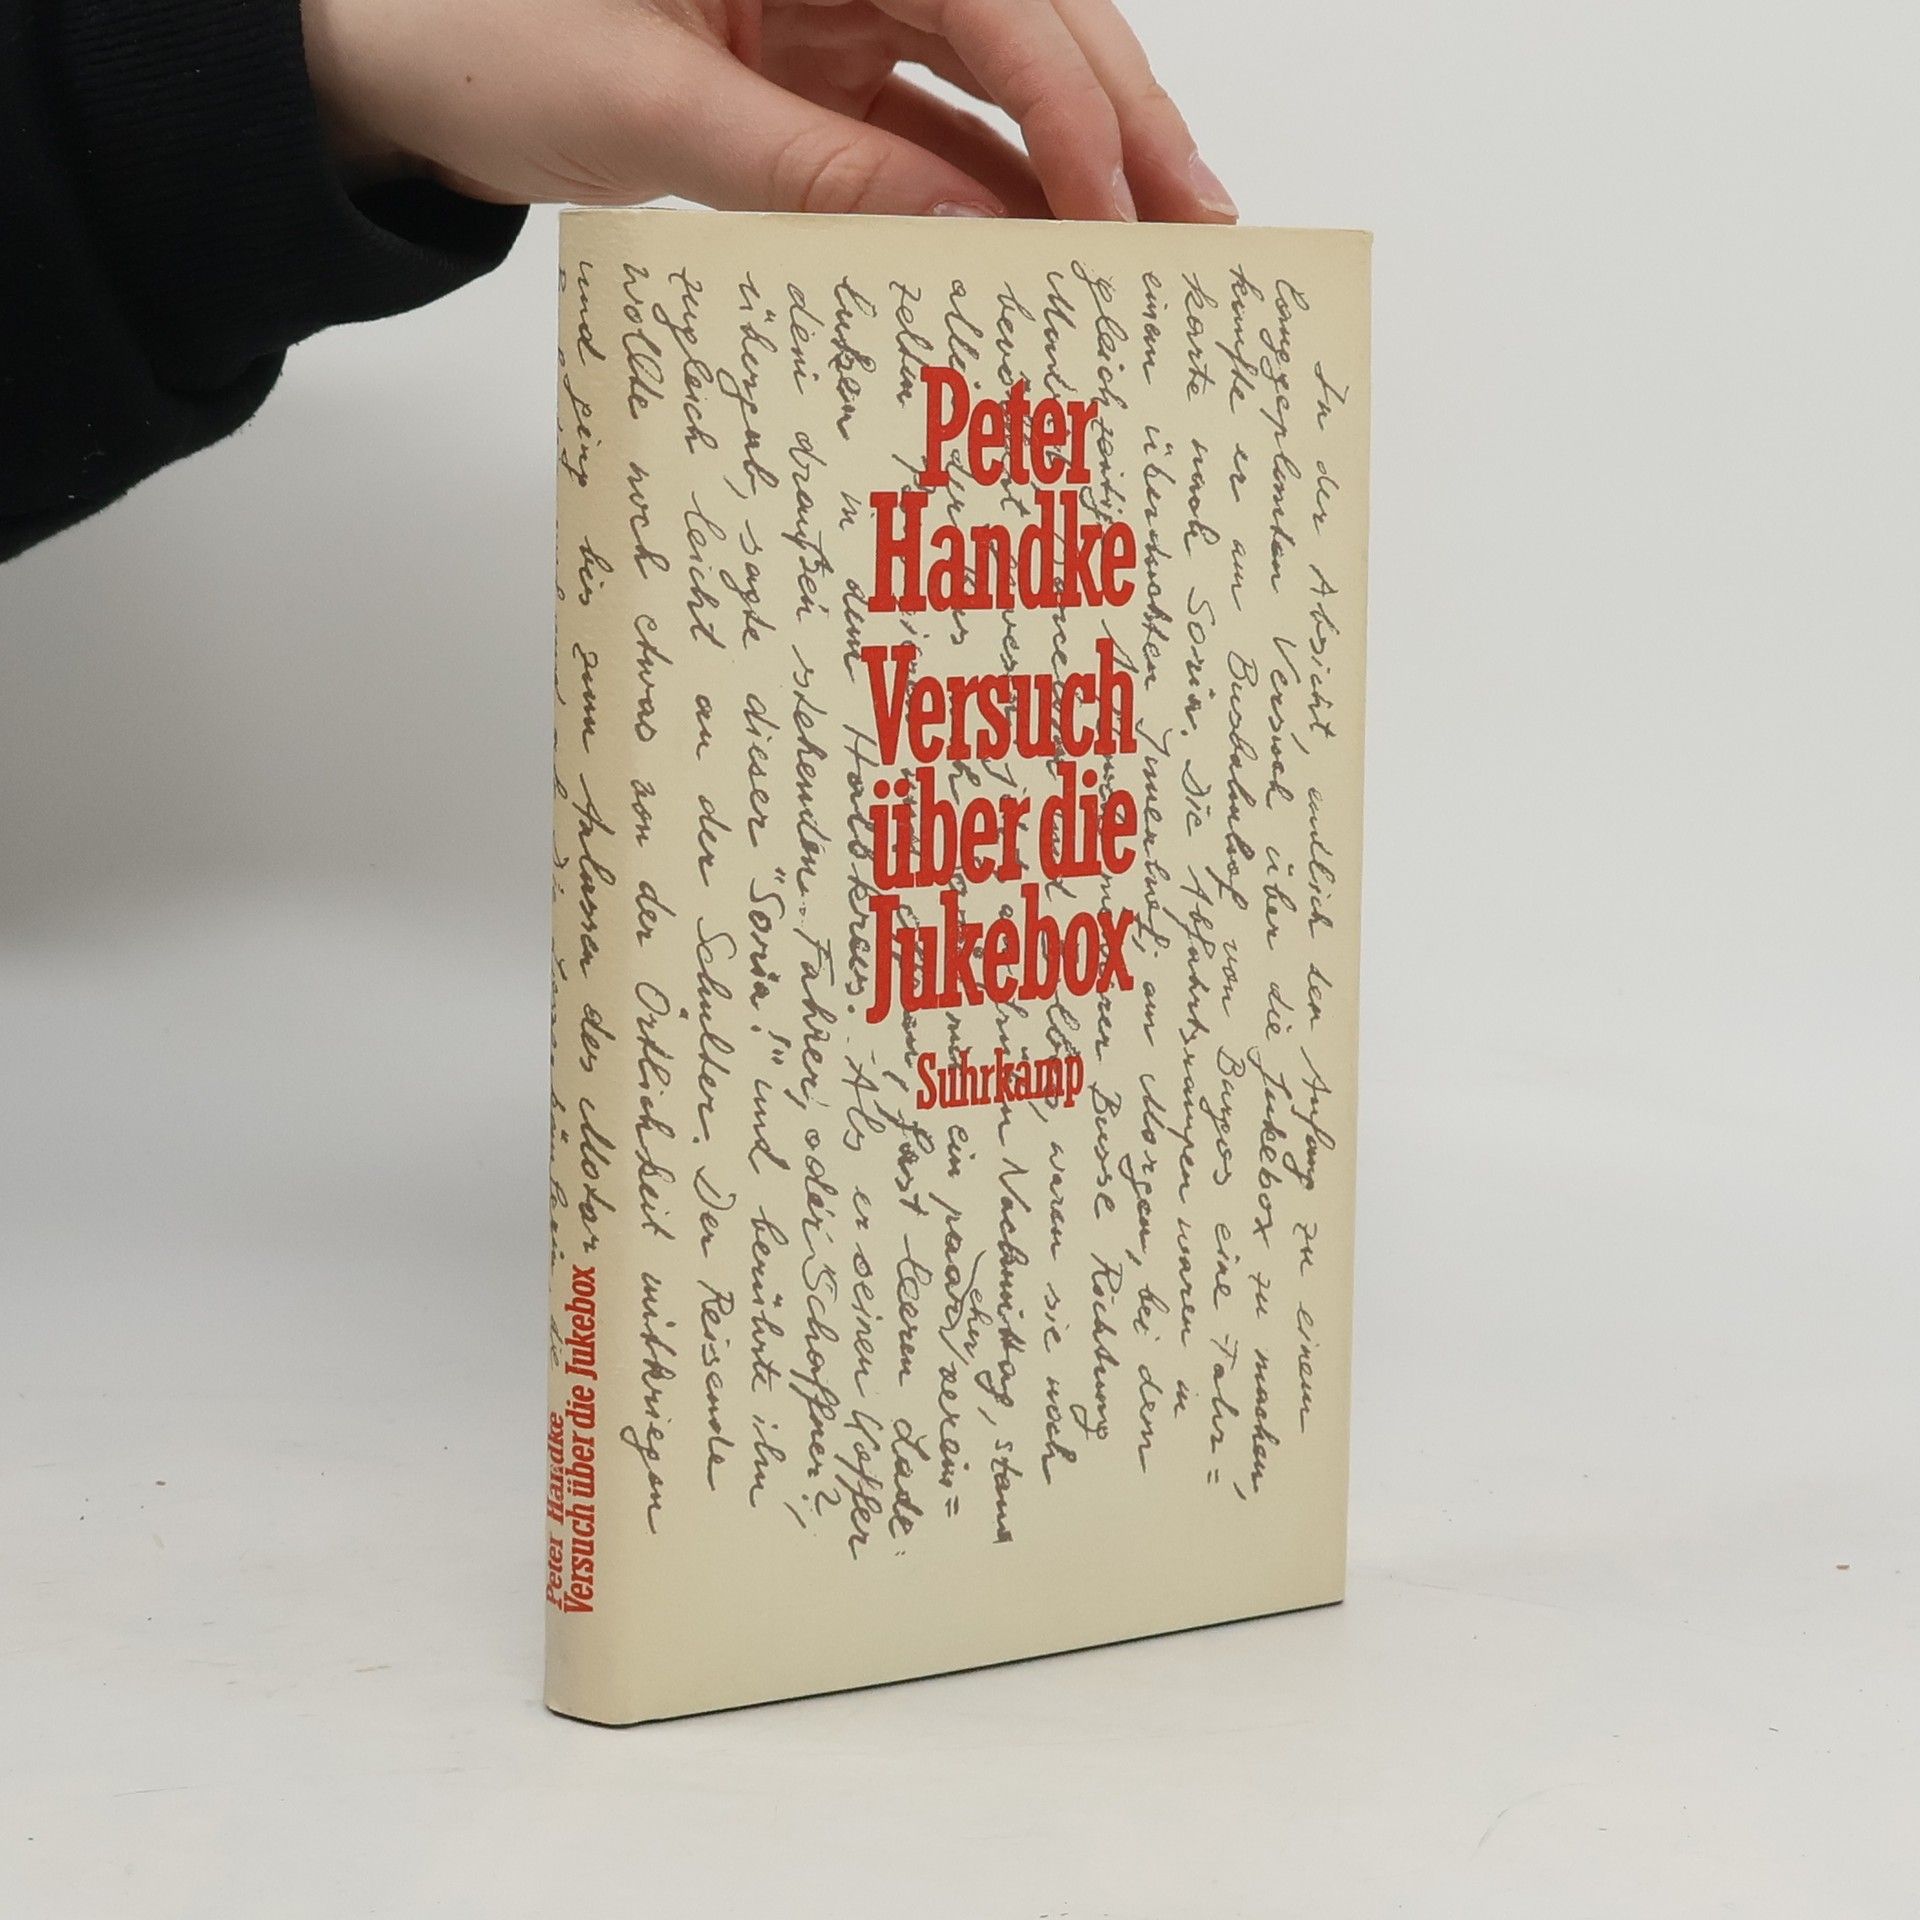 Peter
Handke
Versuch
über die
Jukebox
Suhrkamp
Peter Handke
Versuch über die Jukebox
In der Absicht, endlich den Anfang zu einem
langgeplanten Versuch über die Jukebox zu machen,
kaufte er am Busbahnhof von Burgos eine Fahr=
karte nach Soria. Die Abfahrtsrampen waren in
einem überdachten Innenhof; am Morgen, bei dem
gleichzeitigen mehrerer Busse Richtung
waren sie noch
Nachmittag, stand
ein paar eher verein=
zelten fast leeren Lade=
luken in dem Halbkreis. Als er seinen Koffer
dem draußen stehenden Fahrer, oder Schaffner?,
übergab, sagte dieser "Soria!" und berührte ihn
zugleich leicht an der Schulter. Der Reisende
wollte noch etwas von der Örtlichkeit mitkriegen
und ging bis zum Anlassen des Motor